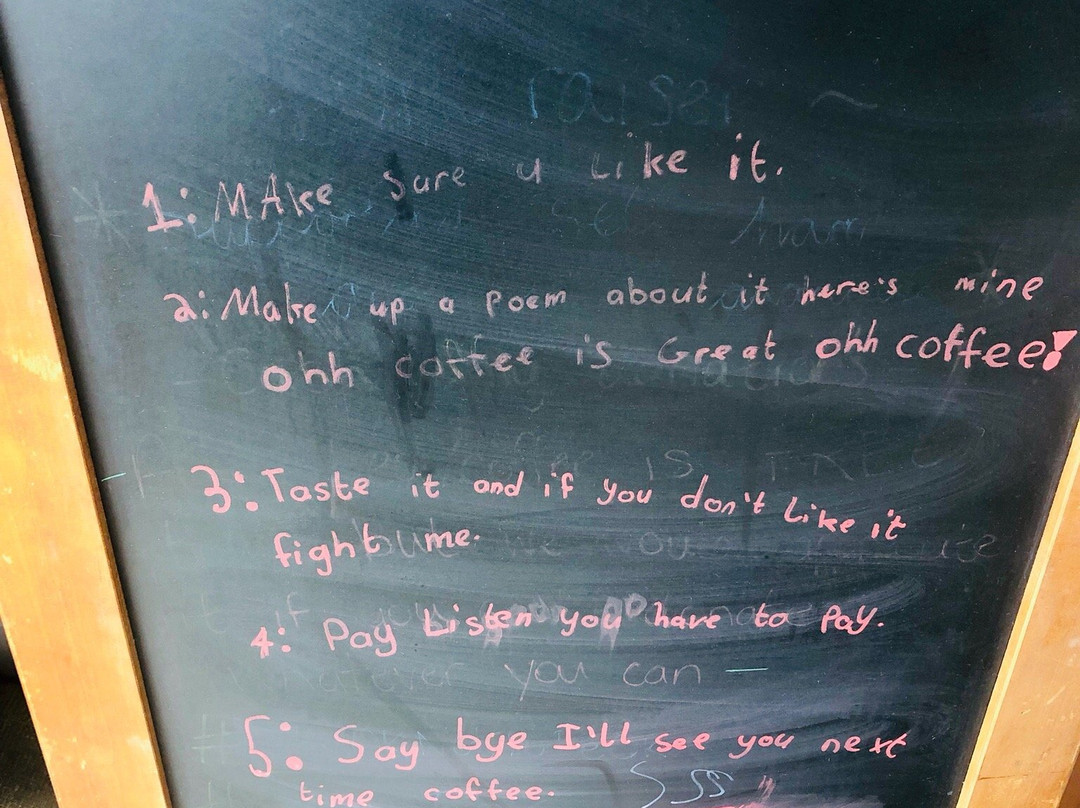 raiser ~
1: MAke Sure u Like it.
2: Make up a poem about it here's mine
ohh coffee is Great ohh coffee!
3: Taste it and if you don't like it
fight me.
4: Pay Listen you have to pay.
you can —
5: Say bye I'll see you next
time coffee.